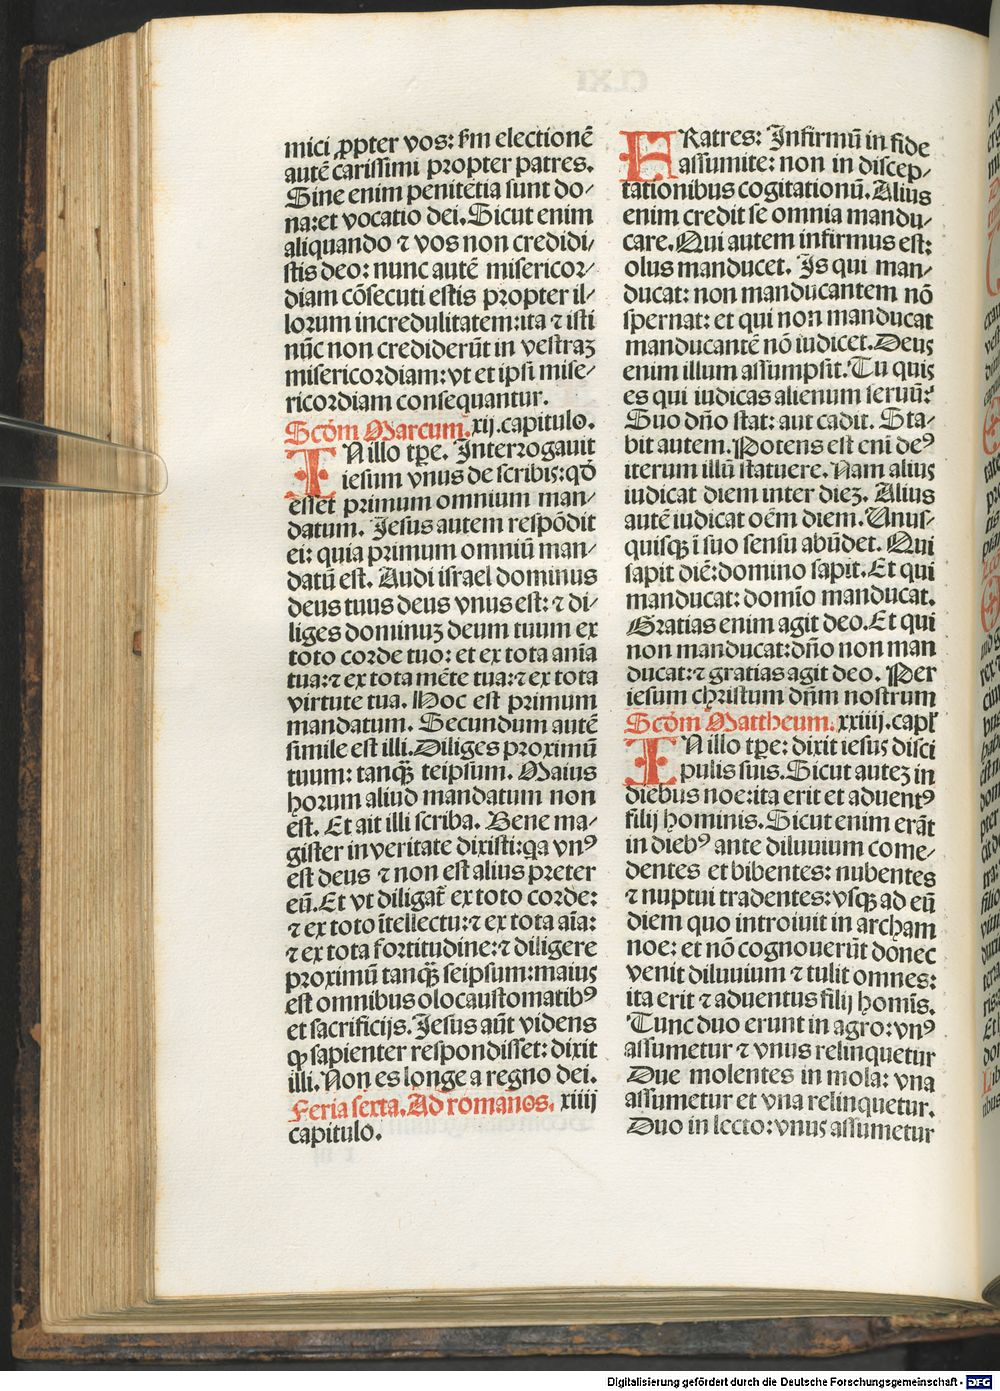 mici ꝓpter vos: ẜm electionē
autē carissimi propter patres.
Sine enim penitētia sunt do⸗
na: et vocatio dei. Sicut enim
aliquando ⁊ vos non credidi⸗
stis deo: nunc autē misericor⸗
diam cōsecuti estis propter il⸗
lorum incredulitatem: ita ⁊ isti
nūc non crediderūt in vestraꝫ
misericordiam: vt et ipsi mise⸗
ricordiam consequantur.
Scḋm Marcum. xij. capitulo.
IN illo tp̄e. Interrogauit
iesum vnus de scribis: qḋ
esset primum omnium man⸗
datum. Jesus autem respōdit
ei: quia primum omniū man⸗
datū est. Audi israel dominus
deus tuus deus vnus est: ⁊ di⸗
liges dominuꝫ deum tuum ex
toto corde tuo: et ex tota anīa
tua: ⁊ ex tota mēte tua: ⁊ ex tota
virtute tua. Hoc est primum
mandatum. Secundum autē
simile est illi. Diliges proximū
tuum: tanqꝫ̄ teipsum. Maius
horum aliud mandatum non
est. Et ait illi scriba. Bene ma⸗
gister in veritate dixisti: qꝛ vnꝰ
est deus ⁊ non est alius preter
eū. Et vt diligat̄ ex toto corde:
⁊ ex toto ītellectu: ⁊ ex tota aīa:
⁊ ex tota fortitudine: ⁊ diligere
proximū tanqꝫ̄ seipsum: maius
est omnibus olocaustomatibꝰ
et sacrificijs. Jesus aūt videns
ꝙ sapienter respondisset: dixit
illi. Non es longe a regno dei.
Feria sexta. Ad romanos. xiiij
capitulo.
FRatres: Infirmū in fide
assumite: non in discep⸗
tationibus cogitationū. Alius
enim credit se omnia mandu⸗
care. Qui autem infirmus est:
olus manducet. Is qui man⸗
ducat: non manducantem nō
spernat: et qui non manducat
manducantē nō iudicet. Deus
enim illum assumpsit. Tu quis
es qui iudicas alienum seruū:
Suo dn̄o stat: aut cadit. Sta⸗
bit autem. Potens est eni deꝰ
iterum illū statuere. Nam alius
iudicat diem inter dieꝫ. Alius
autē iudicat oēm diem. Vnus⸗
quisqꝫ ī suo sensu abūdet. Qui
sapit diē: domino sapit. Et qui
manducat: domīo manducat.
Gratias enim agit deo. Et qui
non manducat: dn̄o non man
ducat: ⁊ gratias agit deo. Per
iesum christum dn̄m nostrum
Scḋm Mattheum. xxiiij. capl̄
IN illo tp̄e: dixit iesus disci
pulis suis. Sicut auteꝫ in
diebus noe: ita erit et aduentꝰ
filij hominis. Sicut enim erāt
in diebꝰ ante diluuium come⸗
dentes et bibentes: nubentes
⁊ nuptui tradentes: vsqꝫ ad eū
diem quo introiuit in archam
noe: et nō cognouerūt donec
venit diluuium ⁊ tulit omnes:
ita erit ⁊ aduentus filij homīs.
Tunc duo erunt in agro: vnꝰ
assumetur ⁊ vnus relinquetur
Due molentes in mola: vna
assumetur et vna relinquetur.
Duo in lecto: vnus assumetur
Digitalisierung gefördert durch die Deutsche Forschungsgemeinschaft - DFG